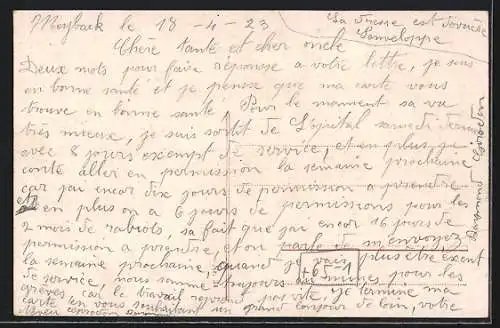 Meyback le 18-4-23
La dresse est derrière l'anveloppe
Chère tante et cher oncle
Deux mots pour faire réponse a votre lettre, je suis
en bonne santé et je pense que ma carte vous
trouve en bonne santé, Pour le moment sa va
très mieux, je suis sortit de L'opital samedi dernier
avec 8 jours exempt de service, et en plus je
conté aller en permission la semaine prochaine
car jai encor dix jours de permission a prendre
et en plus on a 6 jours de permissions pour les
2 mois de rabiols, sa fait que jai encor 16 jours de
permission a prendre, et on parle de m'envoyez
la semaine prochaine, quand je vais plus être exent
de service, nous somme toujours au mines, pour les
grèves, car le travail reprend pas vite, je termine ma
carte en vous souhaitant un grand bonjour de loin, votre
Raymond Girodon
+65-1